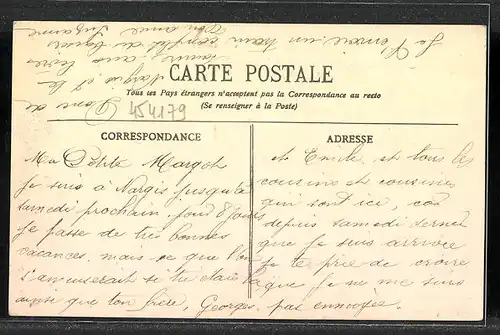 CARTE POSTALE
Tous les Pays étrangers n'acceptent pas la Correspondance au recto
(Se renseigner à la Poste)
454179
CORRESPONDANCE
Ma Petite Margot
Je suis à Nargis jusqu'à
samedi prochain, pour 8 jours
je passe de très bonnes
vacances. mais ce que l'on
s'amuserait si tu étais là
ainsi que ton frère, Georges,
ADRESSE
et Emile, et tous les
cousins et cousines
qui sont ici, car
depuis samedi dernier
que je suis arrivée
je te prie de croire
que je ne me suis
pas ennuyée.
Je t'envoie un
Ton amie Suzanne